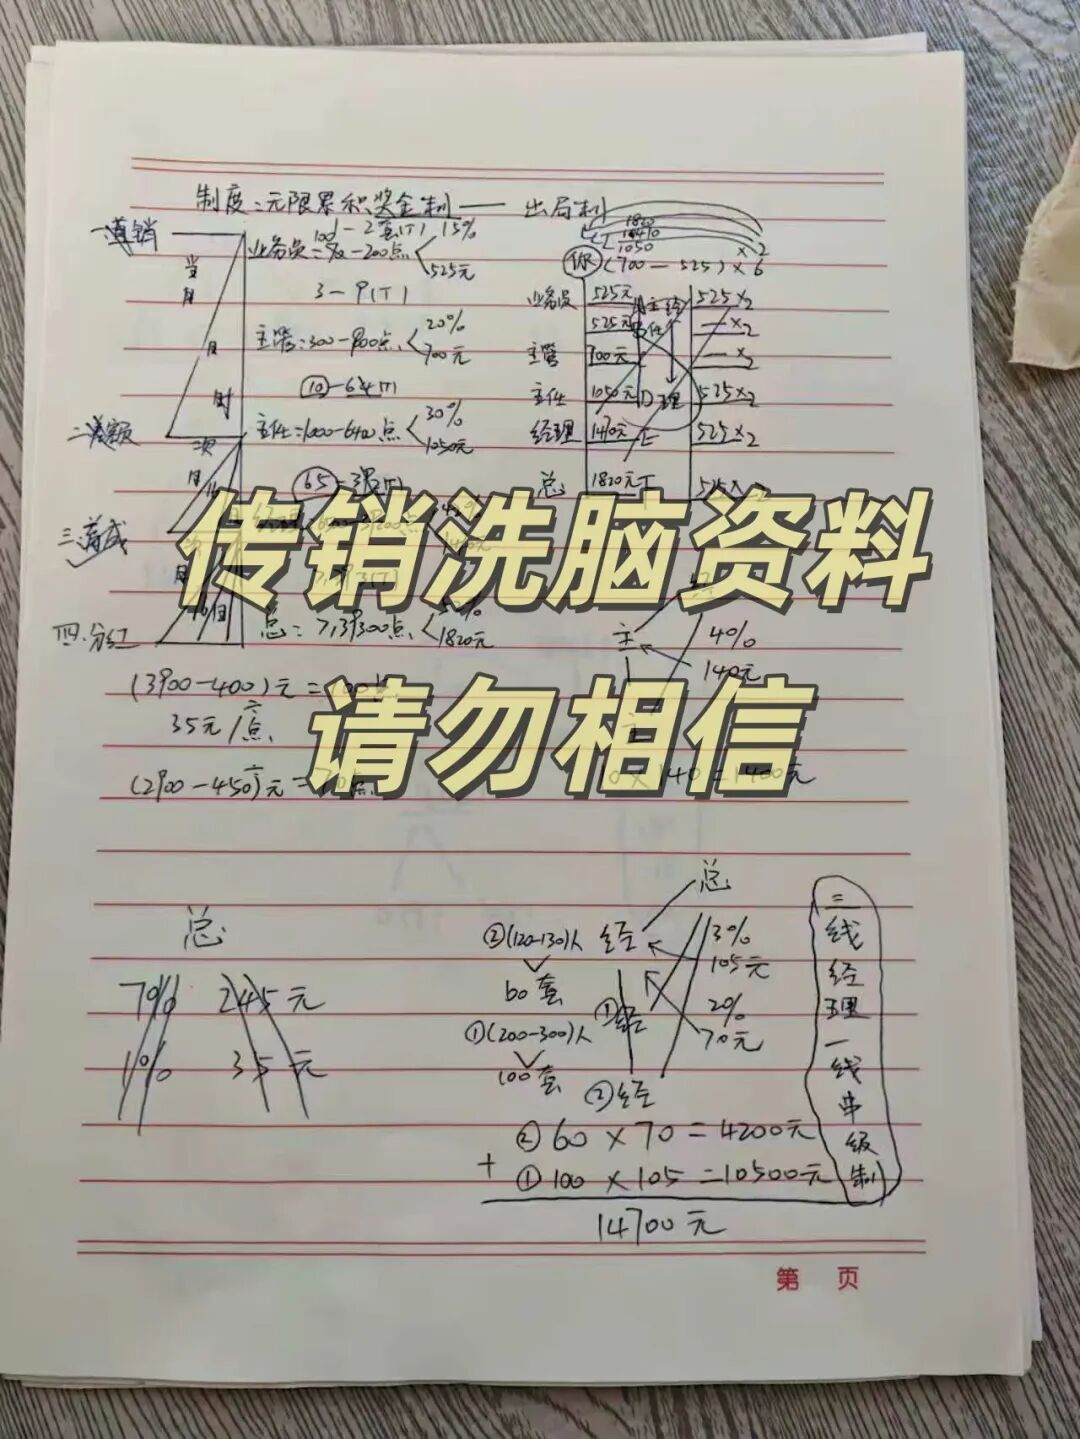 制度:无限累积奖金制——出局制
一直销
业务员
15%
525元
当月
3-9(T)
主管:300-900点
20%
700元
⑩-64(T)
主任:1000-6400点
30%
1050元
二差额
次
三育成
四.分红
总:
52%
1820元
1820
1470
1050
×2
你(700-525)×6
业务员 525元 525×2
525元 —×2
主管 700元 —×2
主任 1050元 525×2
经理 1470元 525×2
总 1820元
传销洗脑资料
请勿相信
主
4%
140元
10×140=1400元
(3900-400)元=100点
35元/点
(2900-450)元=70点
总
7% 245元
1% 35元
总
②(120-130)人 经
3%
105元
60套
①(200-300)人 ①经
2%
70元
100套
②经
②60×70=4200元
+ ①100×105=10500元
14700元
三线经理一线串级制
第 页